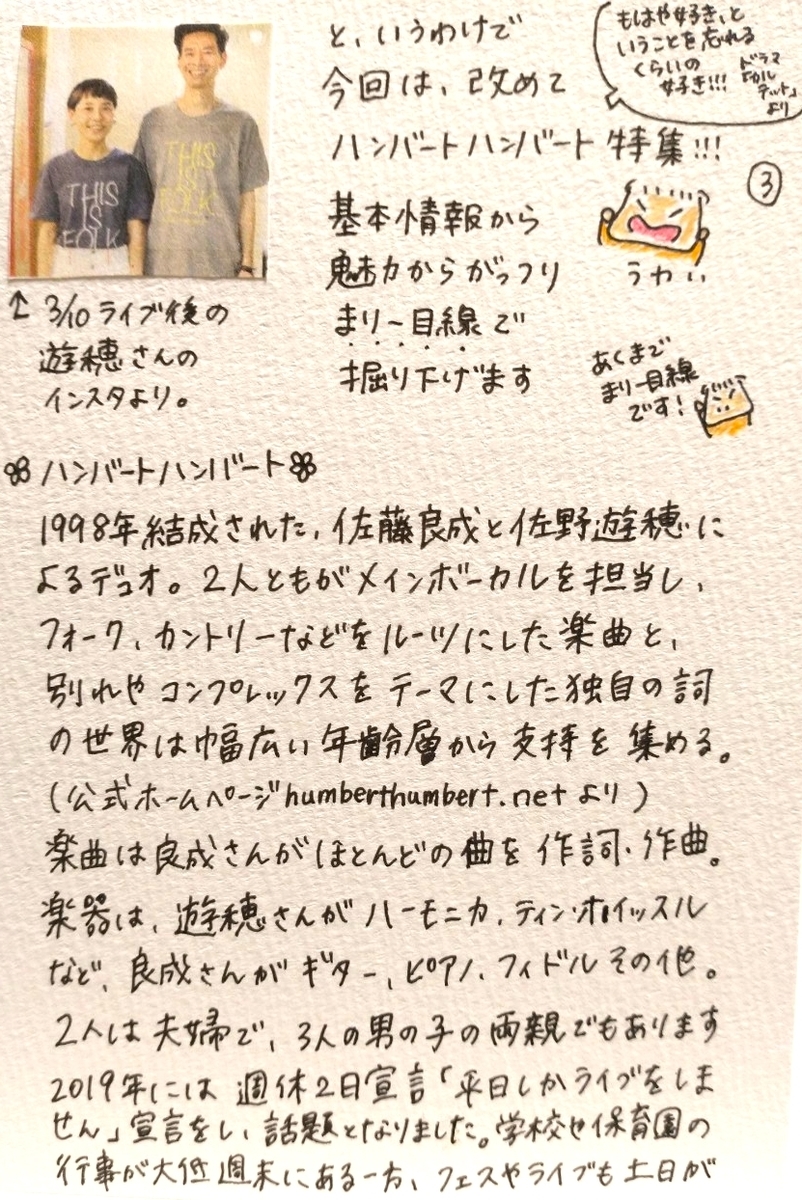 と、いうわけで
今回は、改めて
ハンバートハンバート特集!!!
もはや好き、と
いうことを忘れる
くらいの
好き!!!
ドラマ
「カル
テット」
より
③
基本情報から
魅力からがっつり
まりー目線で
掘り下げます
うわぃ
あくまで
まりー目線
です!
THIS
IS
FOLK
THIS
IS
FOLK
↑ 3/10 ライブ後の
遊穂さんの
インスタより。
ハンバートハンバート
1998年結成された、佐藤良成と佐野遊穂に
よるデュオ。2人ともがメインボーカルを担当し、
フォーク、カントリーなどをルーツにした楽曲と、
別れやコンプレックスをテーマにした独自の詞
の世界は幅広い年齢層から支持を集める。
(公式ホームページhumberthumbert.netより)
楽曲は良成さんがほとんどの曲を作詞・作曲。
楽器は、遊穂さんがハーモニカ、ティン・ホイッスル
など、良成さんがギター、ピアノ、フィドルその他。
2人は夫婦で、3人の男の子の両親でもあります
2019年には週休2日宣言「平日しかライブをしま
せん」宣言をし、話題となりました。学校や保育園の
行事が大低週末にある一方、フェスやライブも土日が